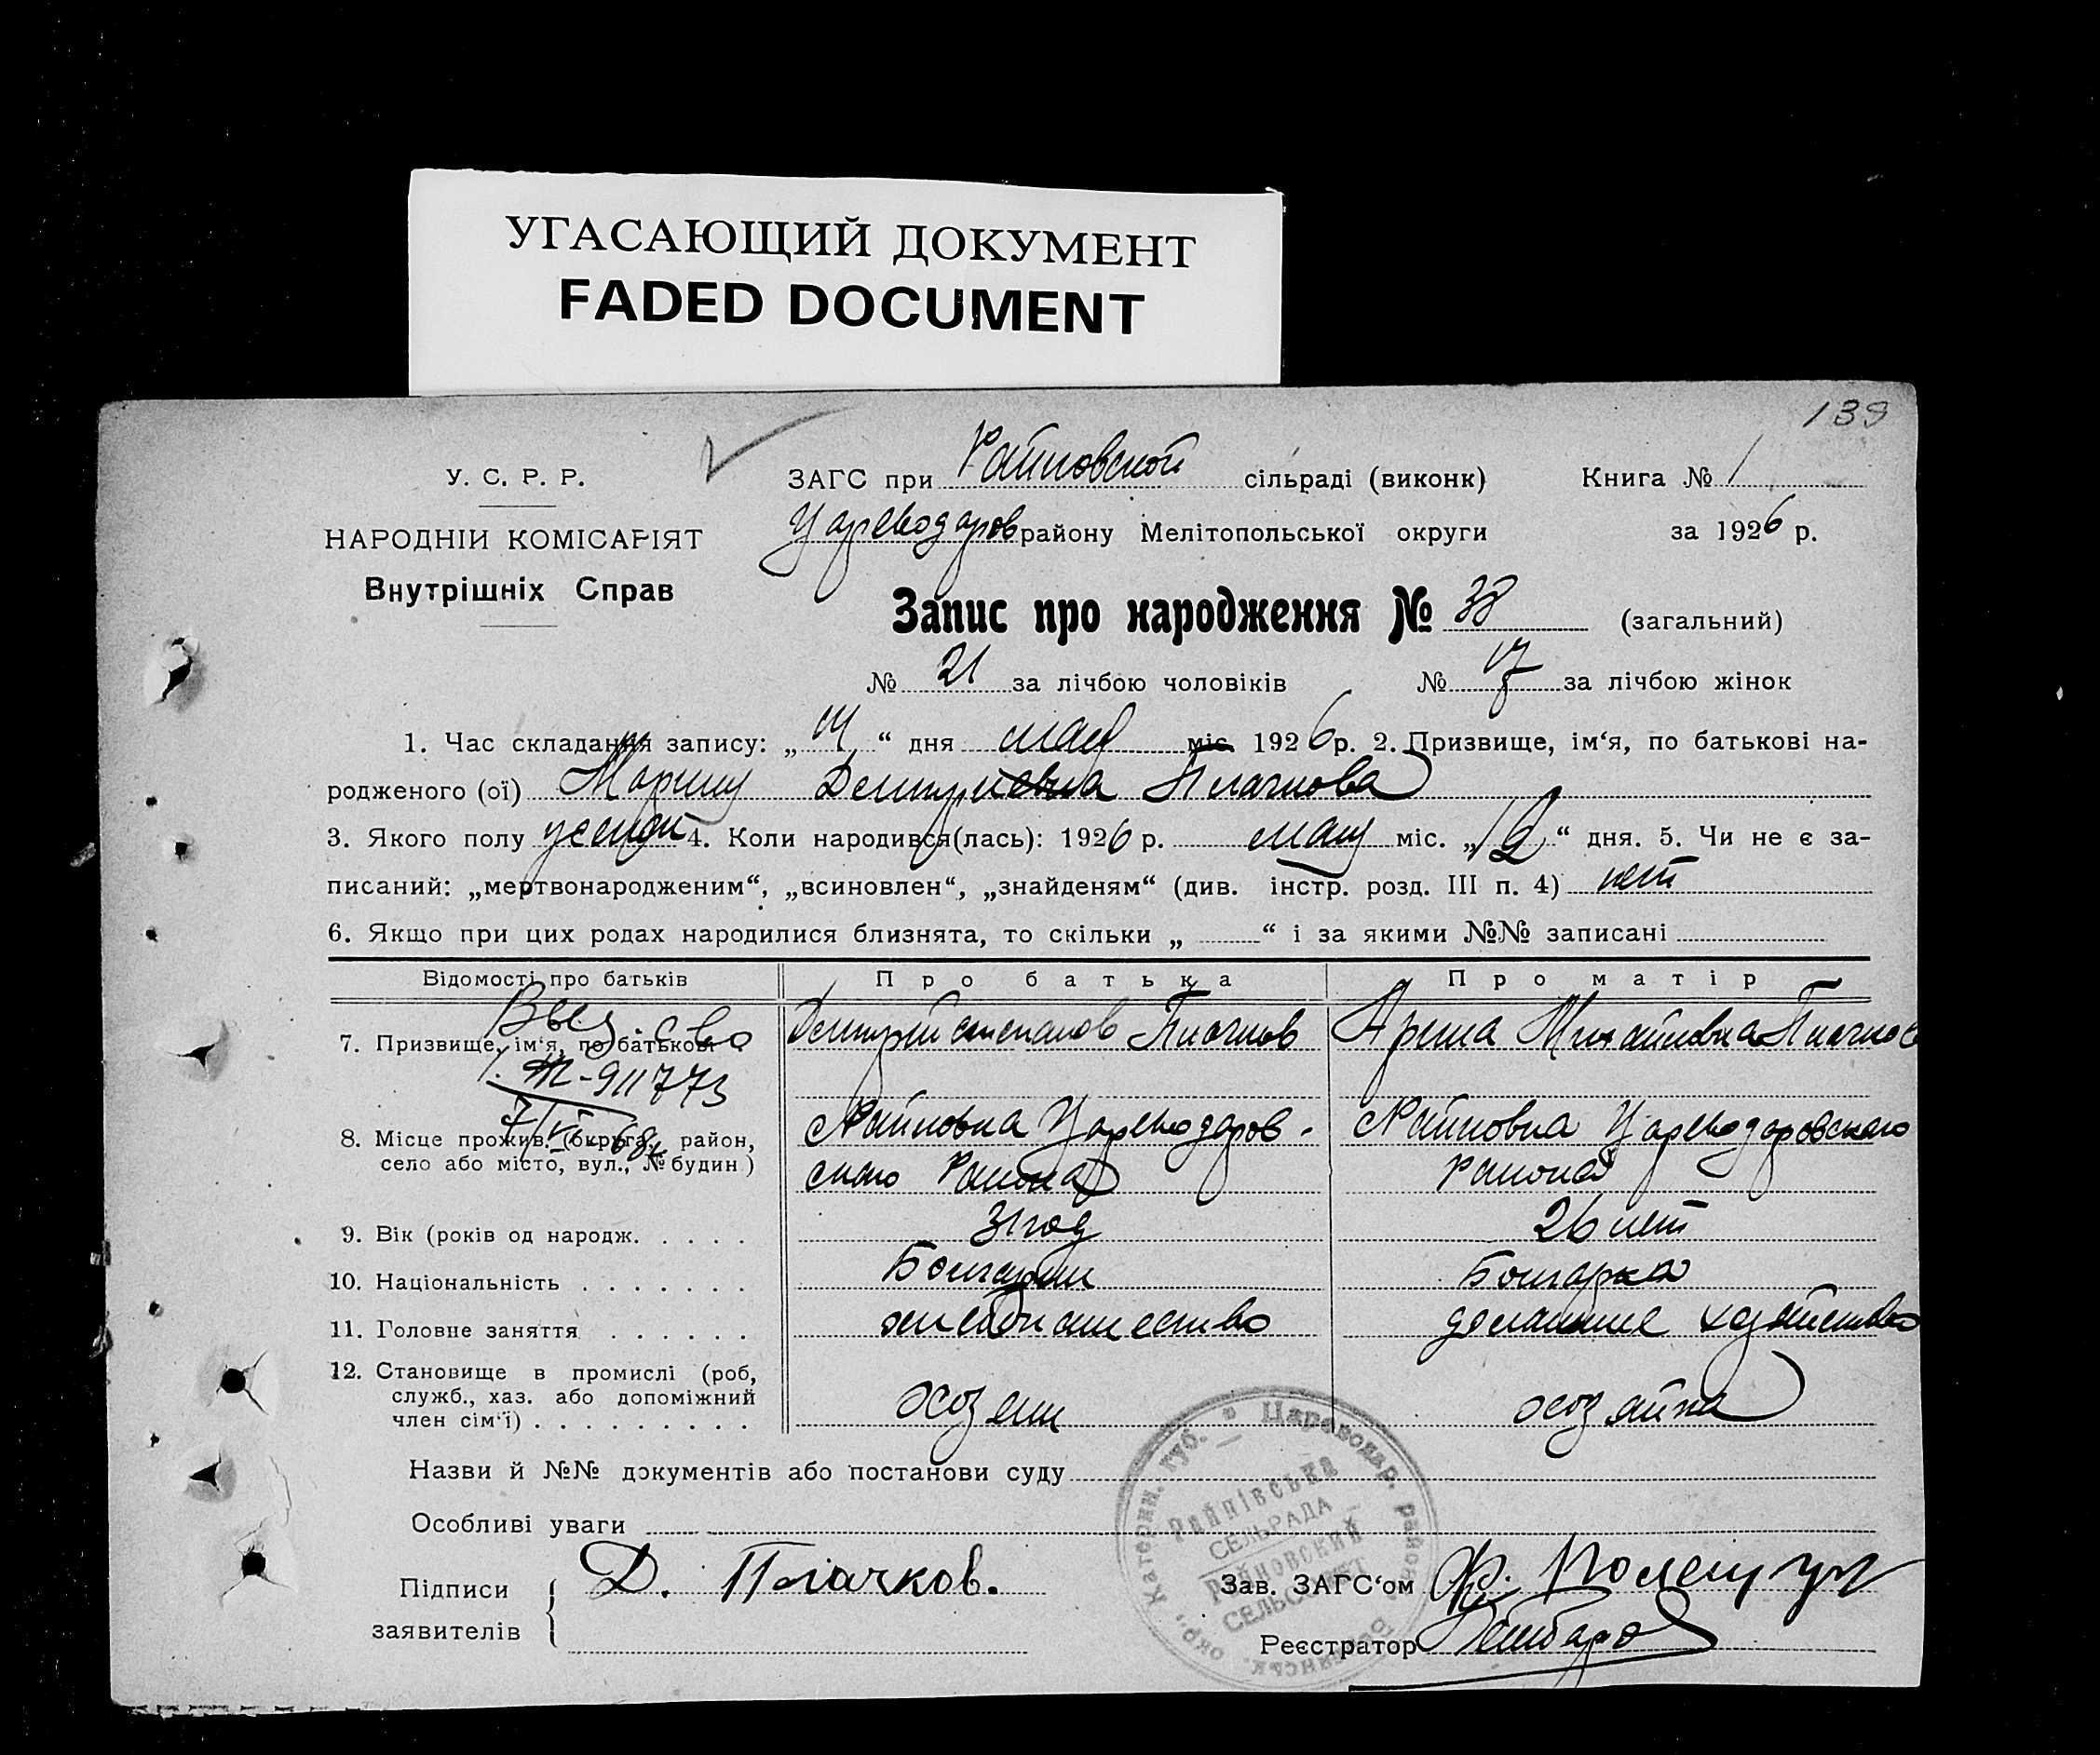 УГАСАЮЩИЙ ДОКУМЕНТ
FADED DOCUMENT
139
У. С. Р. Р.
НАРОДНІЙ КОМІСАРІЯТ
Внутрішніх Справ
ЗАГС при Райновской сільраді (виконк) Книга № 1
Цареводаров району Мелітопольської округи за 1926 р.
Запис про народження № 38 (загальний)
№ 21 за лічбою чоловіків № 17 за лічбою жінок
1. Час складання запису: „ “ дня мая міс. 1926 р. 2. Призвище, ім‘я, по батькові на-
родженого (ої) Плачкова
3. Якого полу 4. Коли народився(лась): 1926 р. мая міс. „12“ дня. 5. Чи не є за-
писаний: „мертвонародженим“, „всиновлен“, „знайденям“ (див. інстр. розд. III п. 4) нет
6. Якщо при цих родах народилися близнята, то скільки „ “ і за якими №№ записані
Відомості про батьків Про батька Про матір
7. Призвище, ім‘я, по батькові Дмитрий степанов Плачков Арина Михайловна Плачков
Выд. с-во
911773
8. Місце прожив. (округа, район, село або місто, вул., № будин) Райновка Цареводаров-
ского Района
Райновка Цареводаровскаго
района
7/VI-68г
9. Вік (років од народж. 31 год 26 лет
10. Національність Болгарин Болгарка
11. Головне заняття хлебопашество домашнее хозяйство
12. Становище в промислі (роб, служб., хаз. або допоміжний член сім‘ї) хозяин хозяйка
Назви й №№ документів або постанови суду
Особливі уваги
Підписи заявителів Д. Плачков.
Зав. ЗАГС‘ом Ф. Полещук
Реєстратор
Катерин. губ. Цареводар. район
Райнівська
СЕЛЬРАДА
Райновский
СЕЛЬСОВЕТ